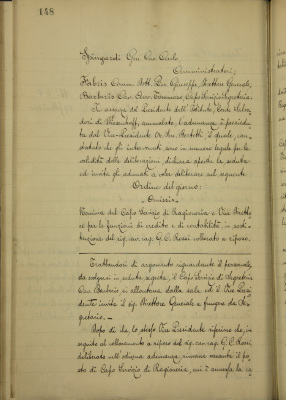 148
Spingardi Gen. Cav. Carlo
Amministratori;
Fabris Comm. Dott. Pier Giuseppe, Direttore Generale,
Barberis Cav. Tommaso, Capo Servizio Segreteria.
In assenza del Presidente dell'Istituto, Conte
ammalato, l'adunanza è presiedu-
ta dal Vice-Presidente On. il quale, con-
statato che gli intervenuti sono in numero legale per la
validità delle deliberazioni, dichiara aperta la seduta
ed invita gli adunati a voler deliberare sul seguente
Ordine del giorno:
- Omissis -
Nomina del Capo Servizio di Ragioneria e Vice Dretto
re per le funzioni di credito e di contabilità in sosti-
tuzione del sig. cav. rag. G. C. Rossi collocato a riposo.
Trattandosi di argomento riguardante il personale,
da svolgersi in seduta segreta, il Capo Servizio di Segreteria
Cav. Barberis si allontana dalla sala ed il Vice Presi-
dente invita il sig. Direttore Generale a fungere da Se-
gretario. -
Dopo di che, lo stesso Vice Presidente riferisce che, in
seguito al collocamento a riposo del sig. cav. rag. G. C. Rossi
deliberato nell'odierna adunanza, rimane vacante il po-
sto di Capo Servizio di Ragioneria, cui è annessa la ca